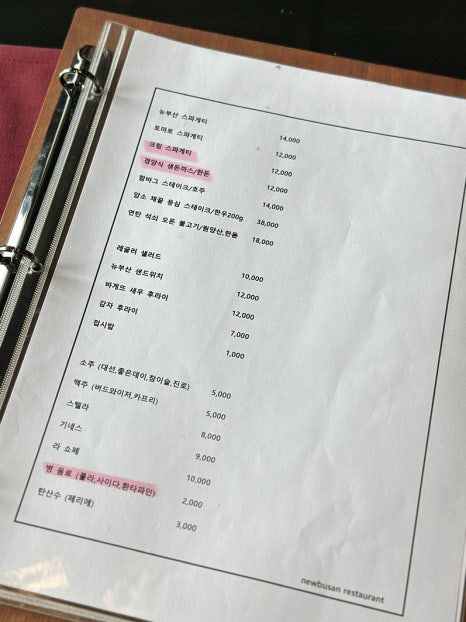 뉴부산 스파게티 14,000
토마토 스파게티 12,000
크림 스파게티 12,000
경양식 생돈까스/한돈 12,000
함바그 스테이크/호주 14,000
암소 채끝 등심 스테이크/한우200g 38,000
면탄 석쇠 오돈 불고기/원양산,한돈 18,000
레귤러 샐러드 10,000
뉴부산 샌드위치 12,000
바게뜨 새우 후라이 12,000
감자 후라이 7,000
접시밥 1,000
소주 (대선,좋은데이,참이슬,진로) 5,000
맥주 (버드와이저,카프리) 5,000
스텔라 8,000
기네스 9,000
라 쇼페 10,000
병 음료 (콜라,사이다,환타파인) 2,000
탄산수 (페리에) 3,000
newbusan restaurant